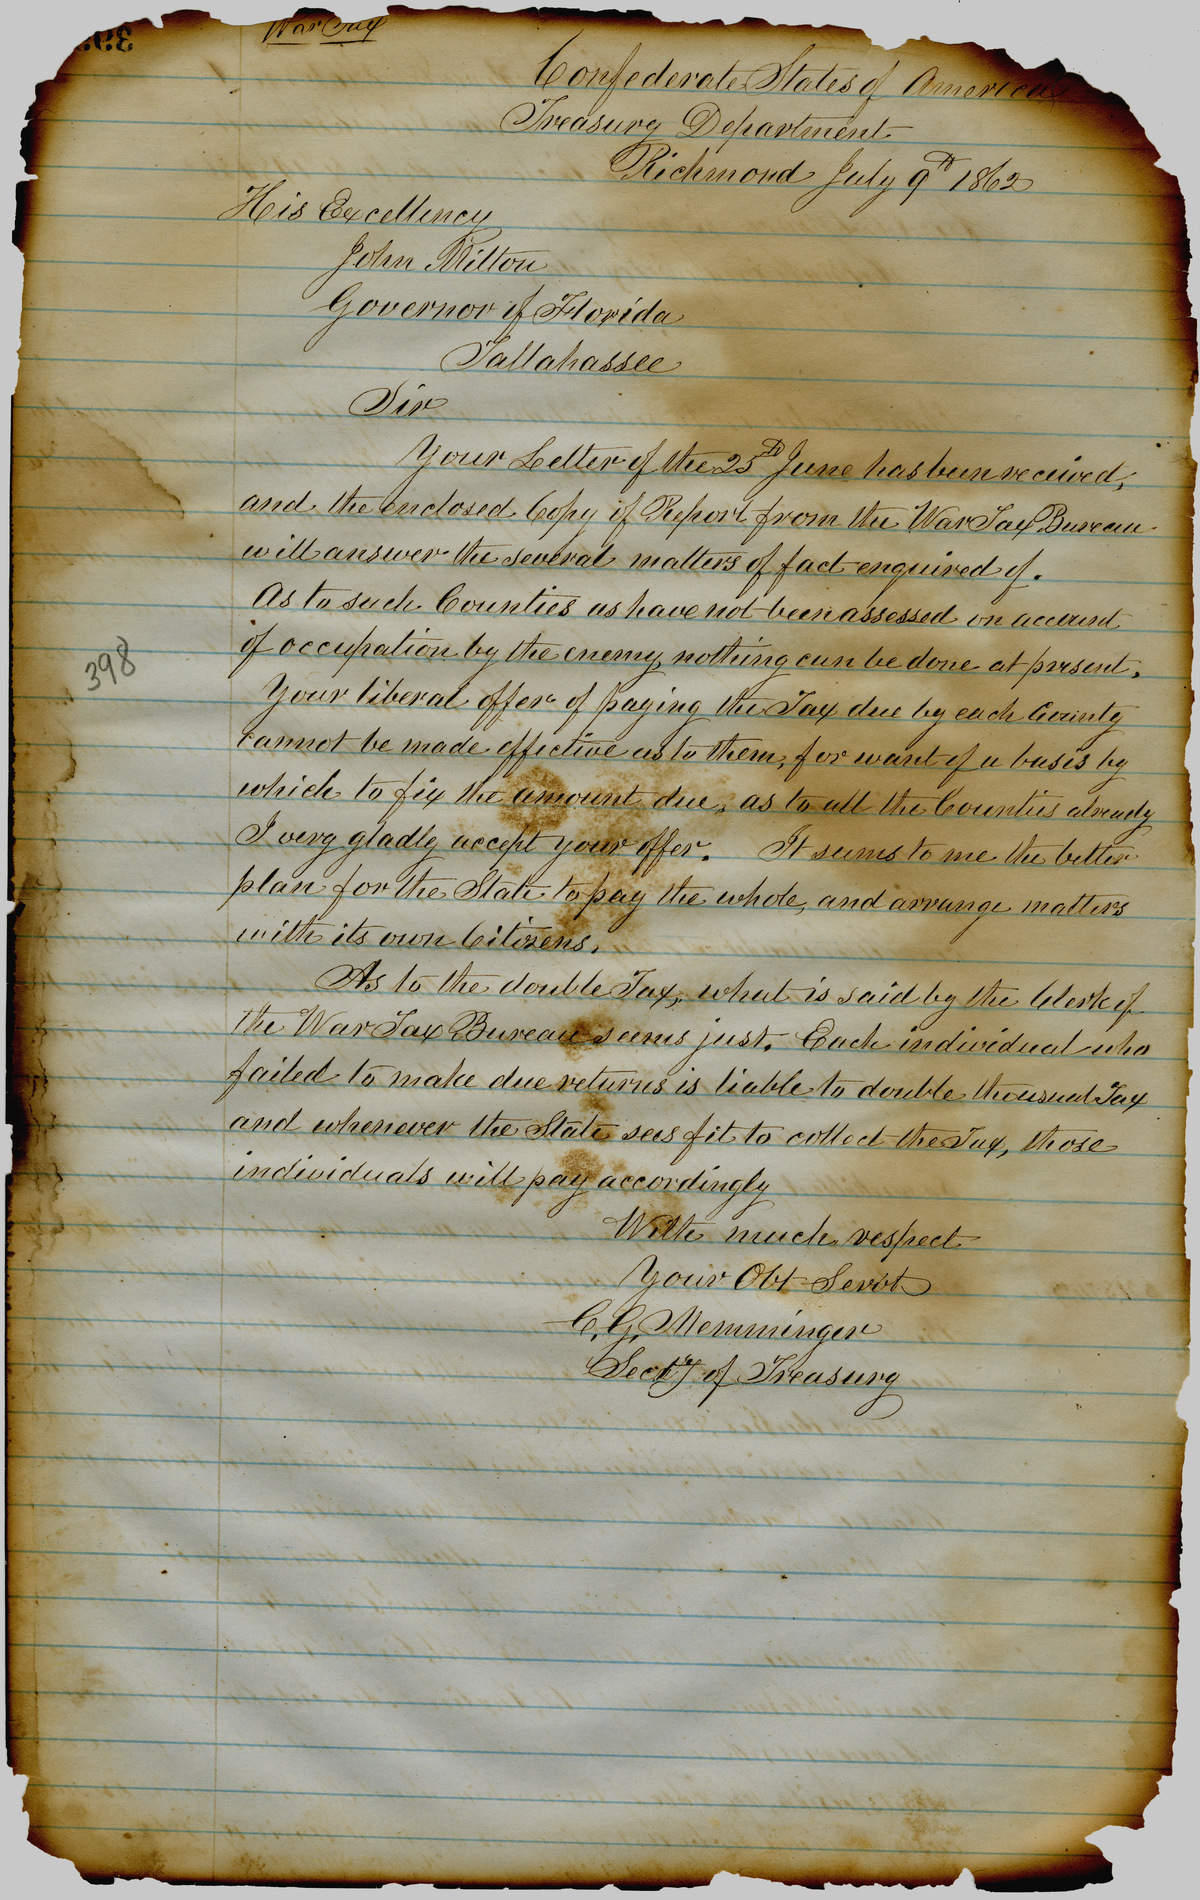 War Tax
Confederate States of America
Treasury Department
Richmond July 9th 1862
His Excellency
John Milton
Governor of Florida
Tallahassee
Sir
Your Letter of the 25th June has been received,
and the enclosed Copy of Report from the War Tax Bureau
will answer the several matters of fact enquired of.
As to such Counties as have not been assessed on account
of occupation by the enemy, nothing can be done at present.
398
Your liberal offer of paying the Tax due by each County
cannot be made effective as to them, for want of a basis by
which to fix the amount due, as to all the Counties already
I very gladly accept your offer. It seems to me the better
plan for the State to pay the whole, and arrange matters
with its own Citizens.
As to the double Tax, what is said by the Clerk of
the War Tax Bureau seems just. Each individual who
failed to make due returns is liable to double the usual Tax
and whenever the State sees fit to collect the Tax, those
individuals will pay accordingly
With much respect
Your Obt Servt
C. G. Memminger
Secty of Treasury